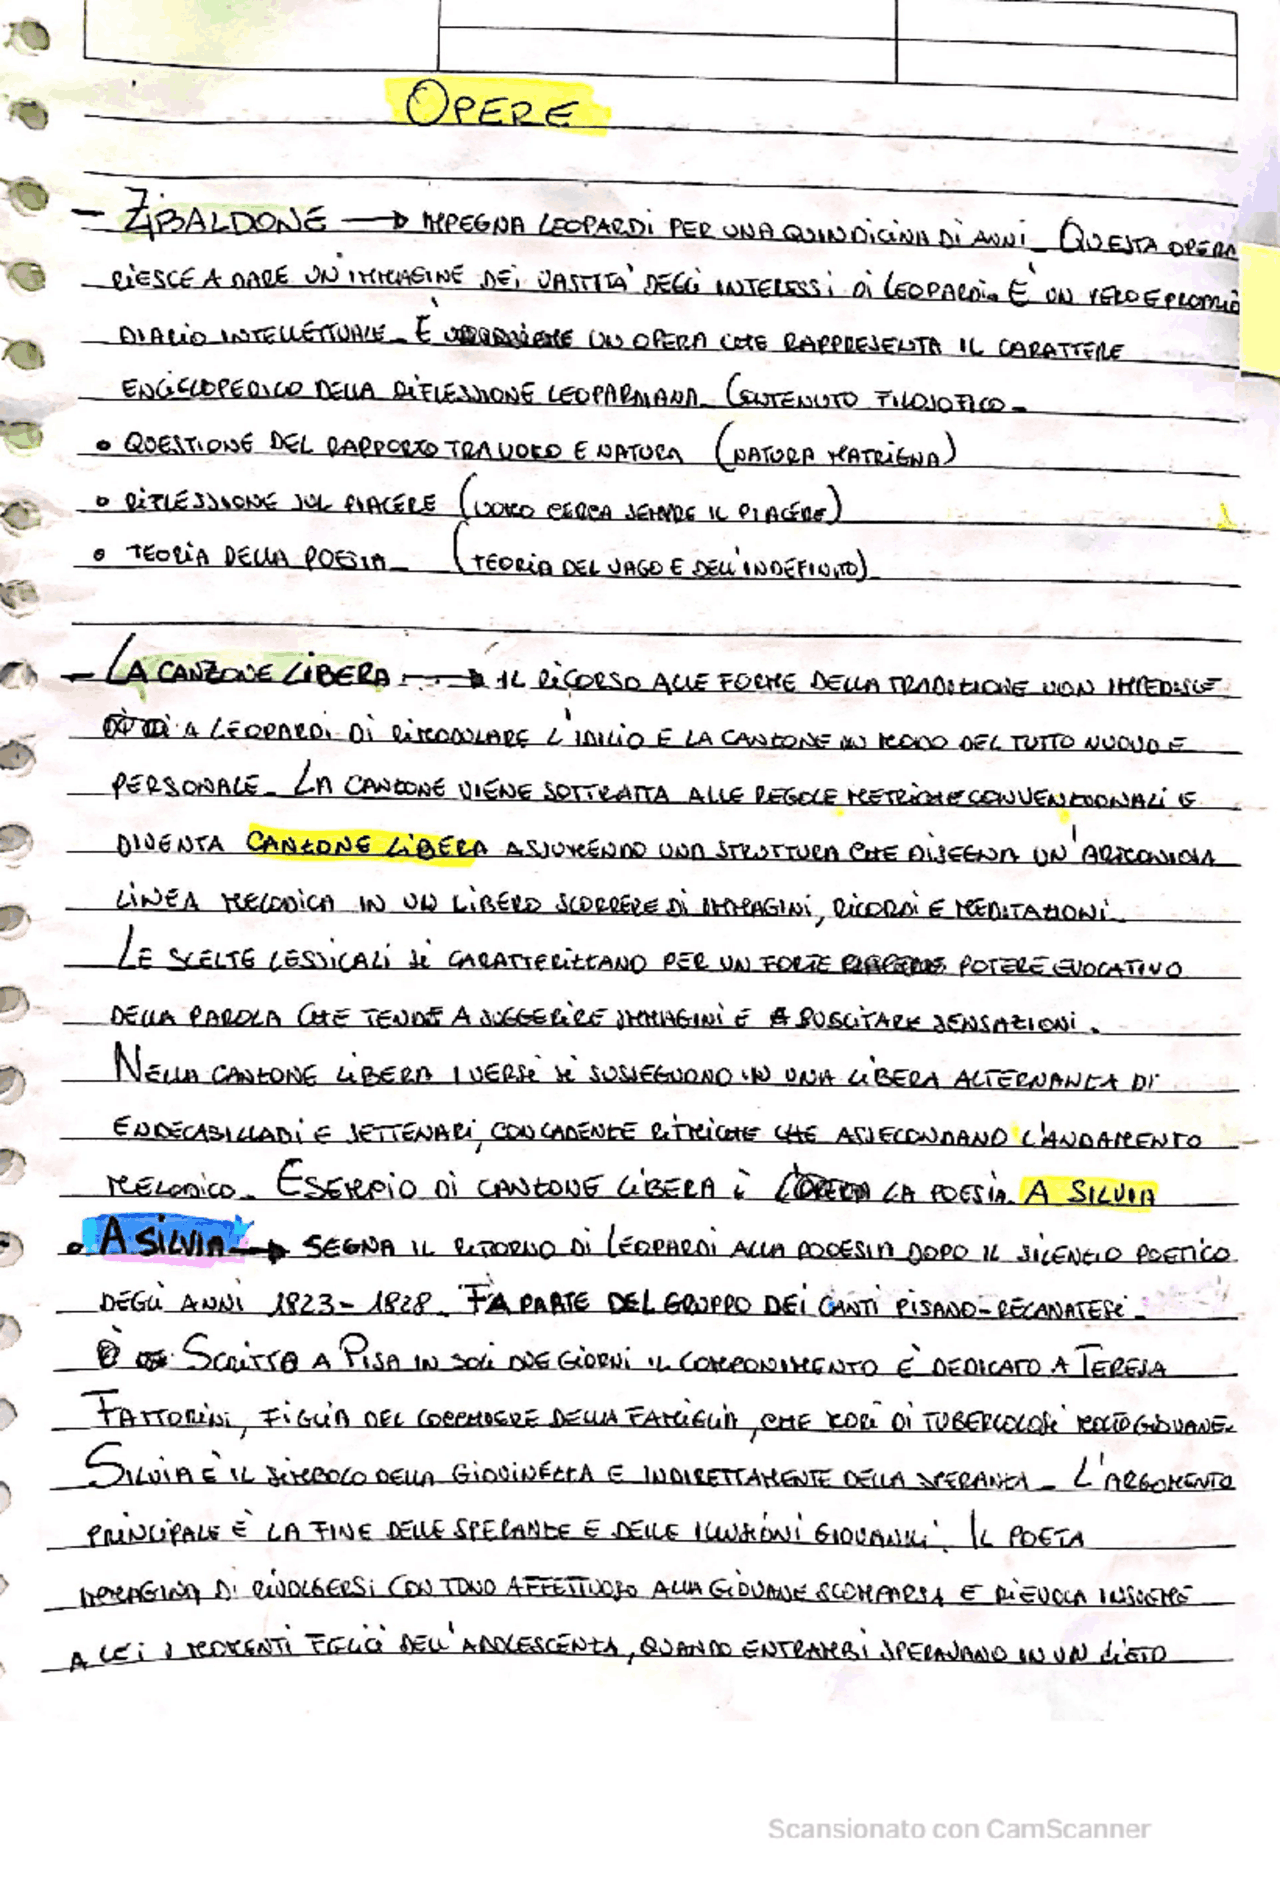 OPERE
- ZIBALDONE → IMPEGNA LEOPARDI PER UNA QUINDICINA DI ANNI_ QUESTA OPERA
RIESCE A DARE UN'IMMAGINE DEI VASTITÀ DEGLI INTERESSI DI LEOPARDI. È UN VERO E PROPRIO
DIARIO INTELLETTUALE_ È UN OPERA CHE RAPPRESENTA IL CARATTERE
ENCICLOPEDICO DELLA RIFLESSIONE LEOPARDIANA_ CONTENUTO FILOSOFICO_
• QUESTIONE DEL RAPPORTO TRA UOMO E NATURA (NATURA MATRIGNA)
• RIFLESSIONE SUL PIACERE (UOMO CERCA SEMPRE IL PIACERE)
• TEORIA DELLA POESIA_ (TEORIA DEL VAGO E DELL'INDEFINITO)
- LA CANZONE LIBERA → IL RICORSO ALLE FORME DELLA TRADIZIONE NON IMPEDISCE
A LEOPARDI DI RIMODULARE L'IDILIO E LA CANZONE IN MODO DEL TUTTO NUOVO E
PERSONALE_ LA CANZONE VIENE SOTTRATTA ALLE REGOLE METRICHE CONVENZIONALI E
DIVENTA CANZONE LIBERA ASSUMENDO UNA STRUTTURA CHE DISEGNA UN'ARMONIOSA
LINEA MELODICA IN UN LIBERO SCORRERE DI IMMAGINI, RICORDI E MEDITAZIONI_
LE SCELTE LESSICALI SI CARATTERIZZANO PER UN FORTE POTERE EVOCATIVO
DELLA PAROLA CHE TENDE A SUGGERIRE IMMAGINI E A SUSCITARE SENSAZIONI.
NELLA CANZONE LIBERA I VERSI SI SUSSEGUONO IN UNA LIBERA ALTERNANZA DI
ENDECASILLABI E SETTENARI, CON CADENZE RITMICHE CHE ASSECONDANO L'ANDAMENTO
MELODICO_ ESEMPIO DI CANZONE LIBERA È LA POESIA A SILVIA
• A SILVIA → SEGNA IL RITORNO DI LEOPARDI ALLA POOESIA DOPO IL SILENZIO POETICO
DEGLI ANNI 1823-1828. FA PARTE DEL GRUPPO DEI CANTI PISANO-RECANATESI_
SCRITTO A PISA IN SOLI DUE GIORNI IL COMPONIMENTO È DEDICATO A TERESA
FATTORINI, FIGLIA DEL COCCHIERE DELLA FAMIGLIA, CHE MORÌ DI TUBERCOLOSI MOLTO GIOVANE_
SILVIA È IL SIMBOLO DELLA GIOVINEZZA E INDIRETTAMENTE DELLA SPERANZA_ L'ARGOMENTO
PRINCIPALE È LA FINE DELLE SPERANZE E DELLE ILLUSIONI GIOVANILI. IL POETA
IMMAGINA DI RIVOLGERSI CON TONO AFFETTUOSO ALLA GIOVANE SCOMPARSA E RIEVOCA INSIEME
A LEI I MOMENTI FELICI DELL'ADOLESCENZA, QUANDO ENTRAMBI SPERAVANO IN UN LIETO
Scansionato con CamScanner